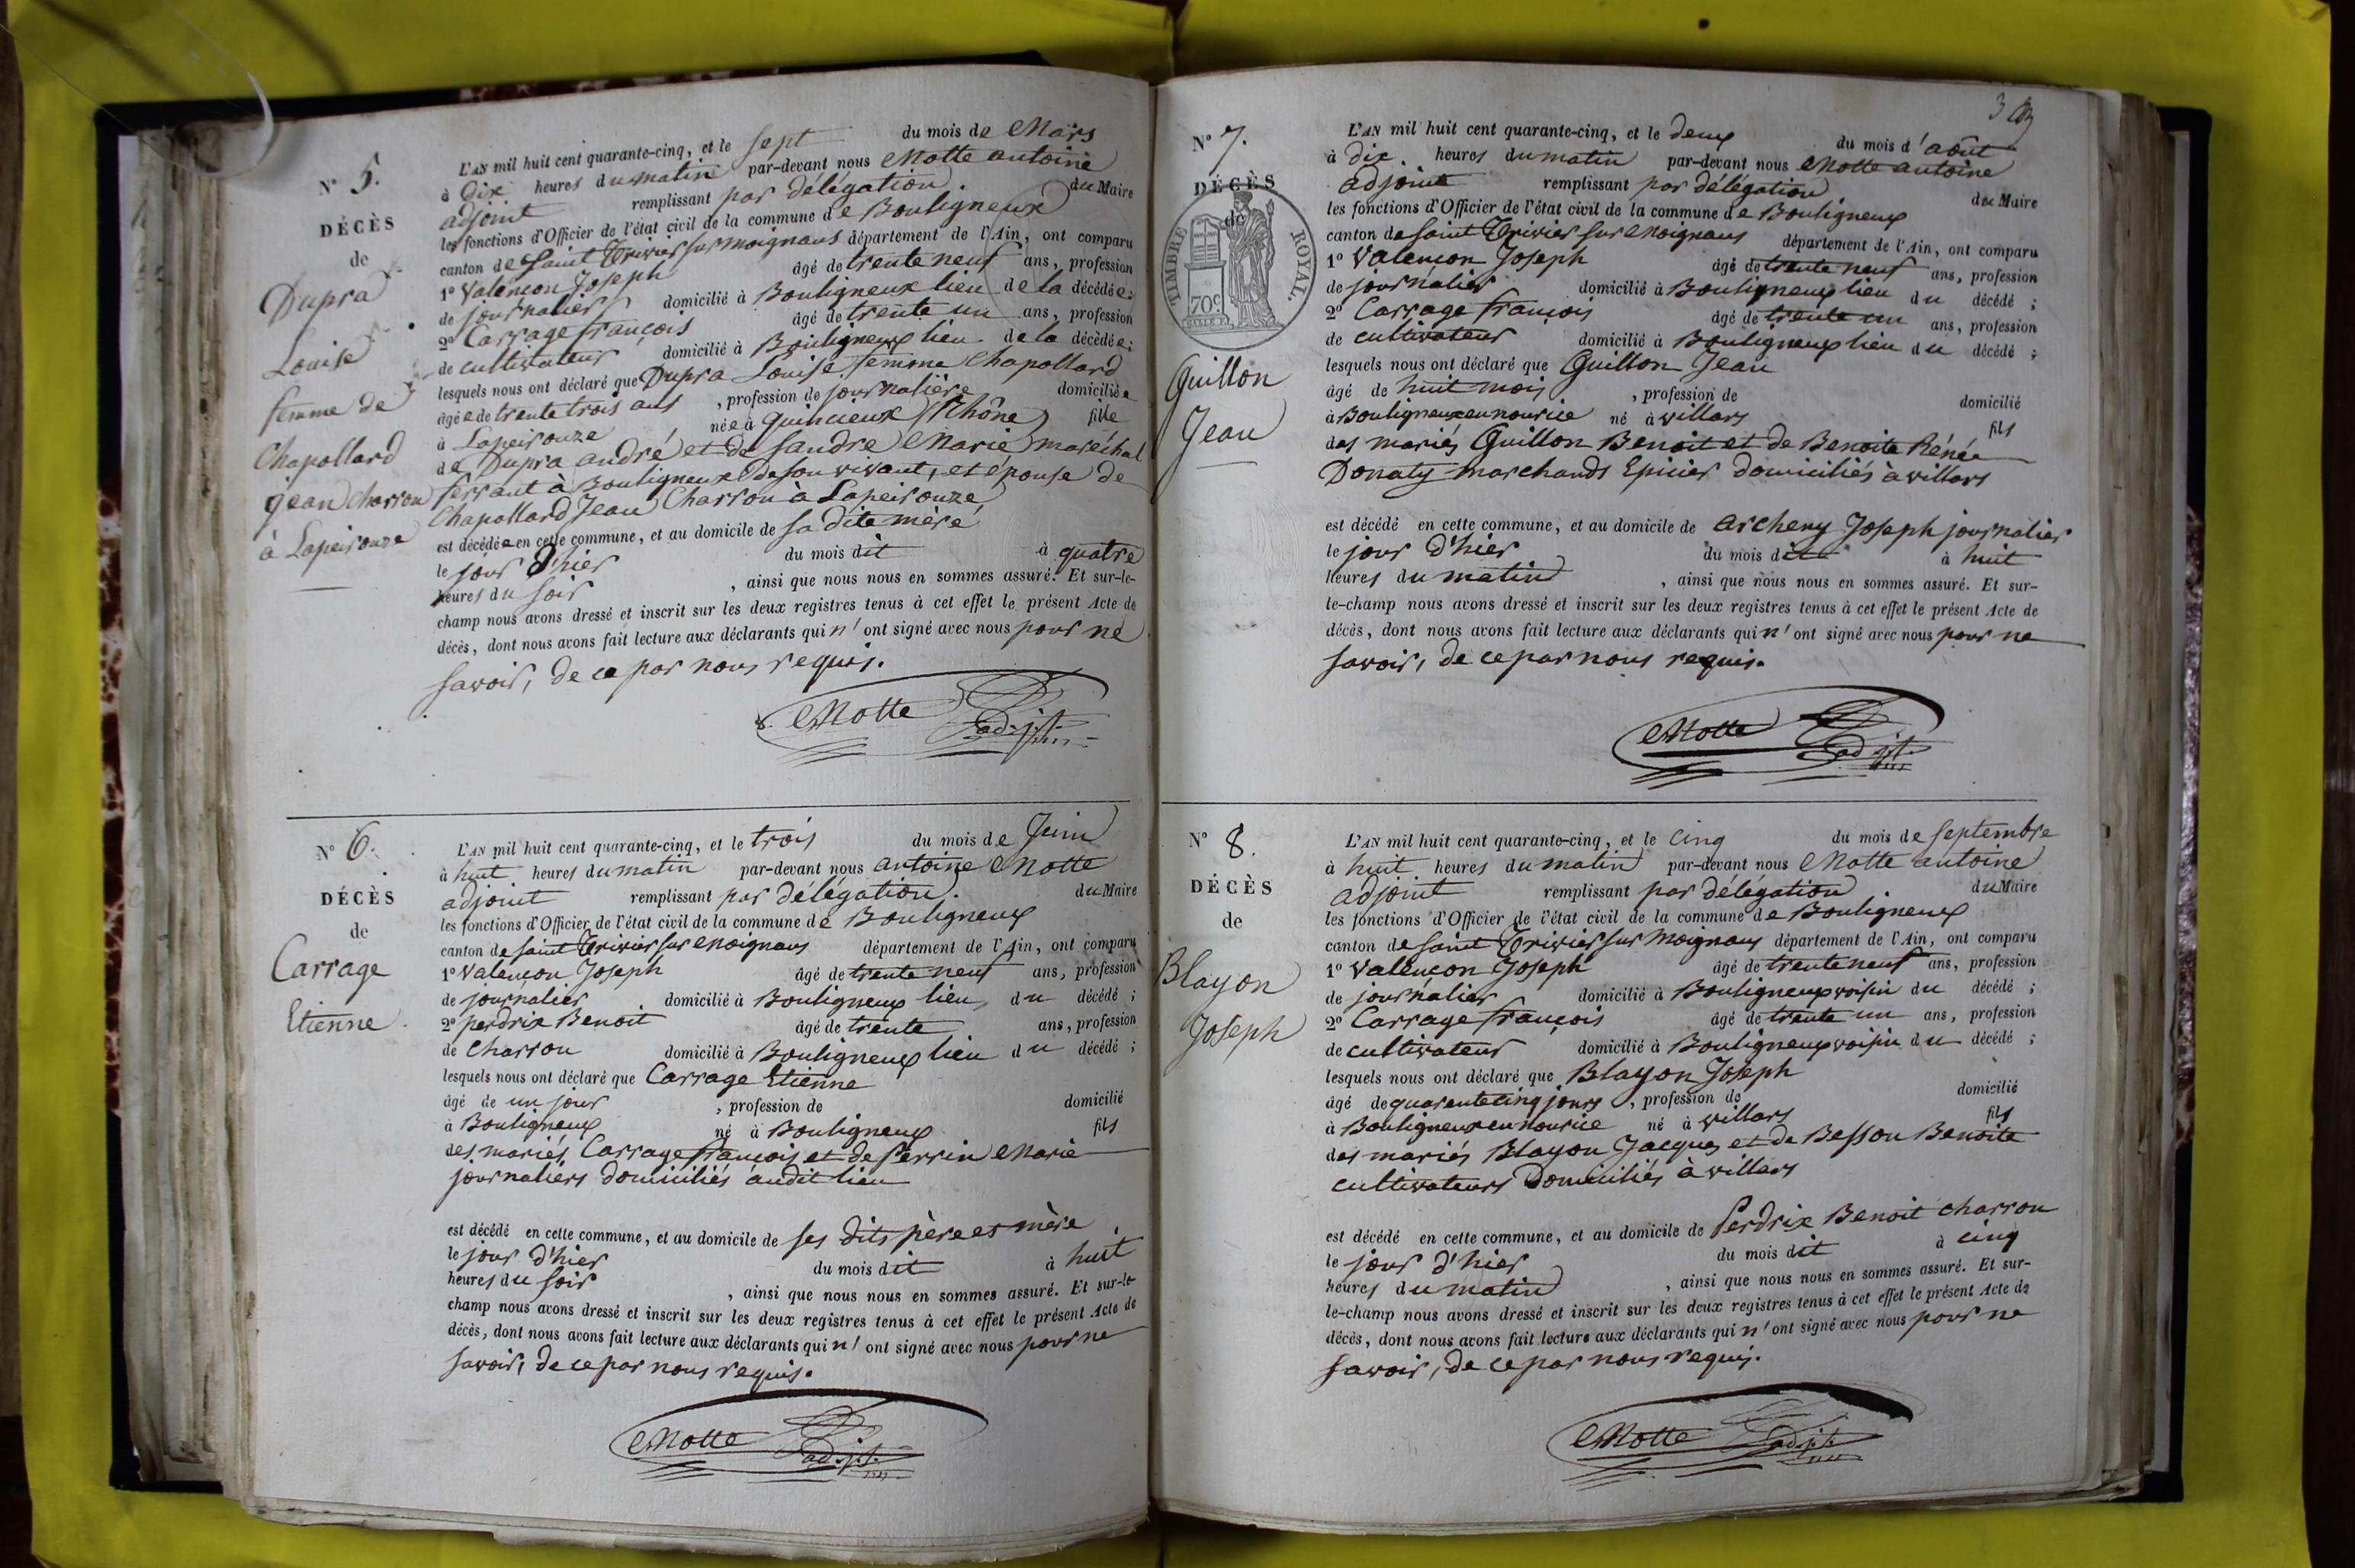 N° 5.
DÉCÈS
de
Dupra
Louise
femme de
Chapollard
jean charron
à Lapeirouze
L'AN mil huit cent quarante-cinq, et le sept du mois de Mars
à dix heures du matin par-devant nous Motte antoine
adjoint remplissant par délégation. du Maire
les fonctions d'Officier de l'état civil de la commune de Bouligneux
canton de Saint Trivier sur moignans département de l'Ain, ont comparu
1° Valençon Joseph âgé de trente neuf ans, profession
de journalier domicilié à Bouligneux lieu de la décédée;
2° Carrage françois âgé de trente un ans, profession
de cultivateur domicilié à Bouligneux lieu de la décédée;
lesquels nous ont déclaré que Dupra Louise femme Chapollard
âgée de trente trois ans, profession de journalière domiciliée
à Lapeirouze née à Quincieux (Rhône) fille
de Dupra andré et de Sandre Marie, maréchal
ferrant à Bouligneux de son vivant, et épouse de
Chapollard Jean Charron à Lapeirouze
est décédée en cette commune, et au domicile de sa dite mère
le jour d'hier du mois dit à quatre
heures du soir, ainsi que nous nous en sommes assuré. Et sur-le-
champ nous avons dressé et inscrit sur les deux registres tenus à cet effet le présent Acte de
décès, dont nous avons fait lecture aux déclarants qui n'ont signé avec nous pour ne
savoir, de ce par nous requis.
Motte adjt.
N° 6.
DÉCÈS
de
Carrage
Etienne
L'AN mil huit cent quarante-cinq, et le trois du mois de Juin
à huit heures du matin par-devant nous antoine Motte
adjoint remplissant par délégation. du Maire
les fonctions d'Officier de l'état civil de la commune de Bouligneux
canton de Saint Trivier sur Moignans département de l'Ain, ont comparu
1° Valençon Joseph âgé de trente neuf ans, profession
de journalier domicilié à Bouligneux lieu du décédé;
2° perdrix Benoit âgé de trente ans, profession
de charron domicilié à Bouligneux lieu du décédé;
lesquels nous ont déclaré que Carrage Etienne
âgé de un jour, profession de domicilié
à Bouligneux né à Bouligneux fils
des mariés Carrage françois et de Perrin Marie
journaliers domiciliés audit lieu
est décédé en cette commune, et au domicile de ses dits père et mère
le jour d'hier du mois dit à huit
heures du soir, ainsi que nous nous en sommes assuré. Et sur-le-
champ nous avons dressé et inscrit sur les deux registres tenus à cet effet le présent Acte de
décès, dont nous avons fait lecture aux déclarants qui n'ont signé avec nous pour ne
savoir, de ce par nous requis.
Motte adjt.
3
N° 7.
DÉCÈS
de
TIMBRE ROYAL.
70c
Guillon
Jean
L'AN mil huit cent quarante-cinq, et le deux du mois d'août
à dix. heures du matin par-devant nous Motte antoine
adjoint remplissant par délégation du Maire
les fonctions d'Officier de l'état civil de la commune de Bouligneux
canton de Saint Trivier sur Moignans département de l'Ain, ont comparu
1° Valençon Joseph âgé de trente neuf ans, profession
de journalier domicilié à Bouligneux lieu du décédé;
2° Carrage françois âgé de trente un ans, profession
de cultivateur domicilié à Bouligneux lieu du décédé;
lesquels nous ont déclaré que Guillon Jean
âgé de huit mois, profession de domicilié
à Bouligneux en nourice né à villars fils
des mariés Guillon Benoit et de Benoite Rénée
Donaty marchands Epicier domiciliés à villars
est décédé en cette commune, et au domicile de archeny Joseph journalier
le jour d'hier du mois dit à huit
heures du matin, ainsi que nous nous en sommes assuré. Et sur-
le-champ nous avons dressé et inscrit sur les deux registres tenus à cet effet le présent Acte de
décès, dont nous avons fait lecture aux déclarants qui n'ont signé avec nous pour ne
savoir, de ce par nous requis.
Motte adjt.
N° 8.
DÉCÈS
de
Blayon
Joseph
L'AN mil huit cent quarante-cinq, et le cinq du mois de Septembre
à huit heures du matin par-devant nous Motte antoine
adjoint remplissant par délégation du Maire
les fonctions d'Officier de l'état civil de la commune de Bouligneux
canton de Saint Trivier sur Moignans département de l'Ain, ont comparu
1° Valençon Joseph âgé de trente neuf ans, profession
de journalier domicilié à Bouligneux voisin du décédé;
2° Carrage françois âgé de trente un ans, profession
de cultivateur domicilié à Bouligneux voisin du décédé;
lesquels nous ont déclaré que Blayon Joseph
âgé de quarente cinq jours, profession de domicilié
à Bouligneux en nourice né à villars fils
des mariés Blayon Jacques et de Besson Benoite
cultivateurs Domiciliés à villars
est décédé en cette commune, et au domicile de Perdrix Benoit charron
le jour d'hier du mois dit à cinq
heures du matin, ainsi que nous nous en sommes assuré. Et sur-
le-champ nous avons dressé et inscrit sur les deux registres tenus à cet effet le présent Acte de
décès, dont nous avons fait lecture aux déclarants qui n'ont signé avec nous pour ne
savoir, de ce par nous requis.
Motte adjt.